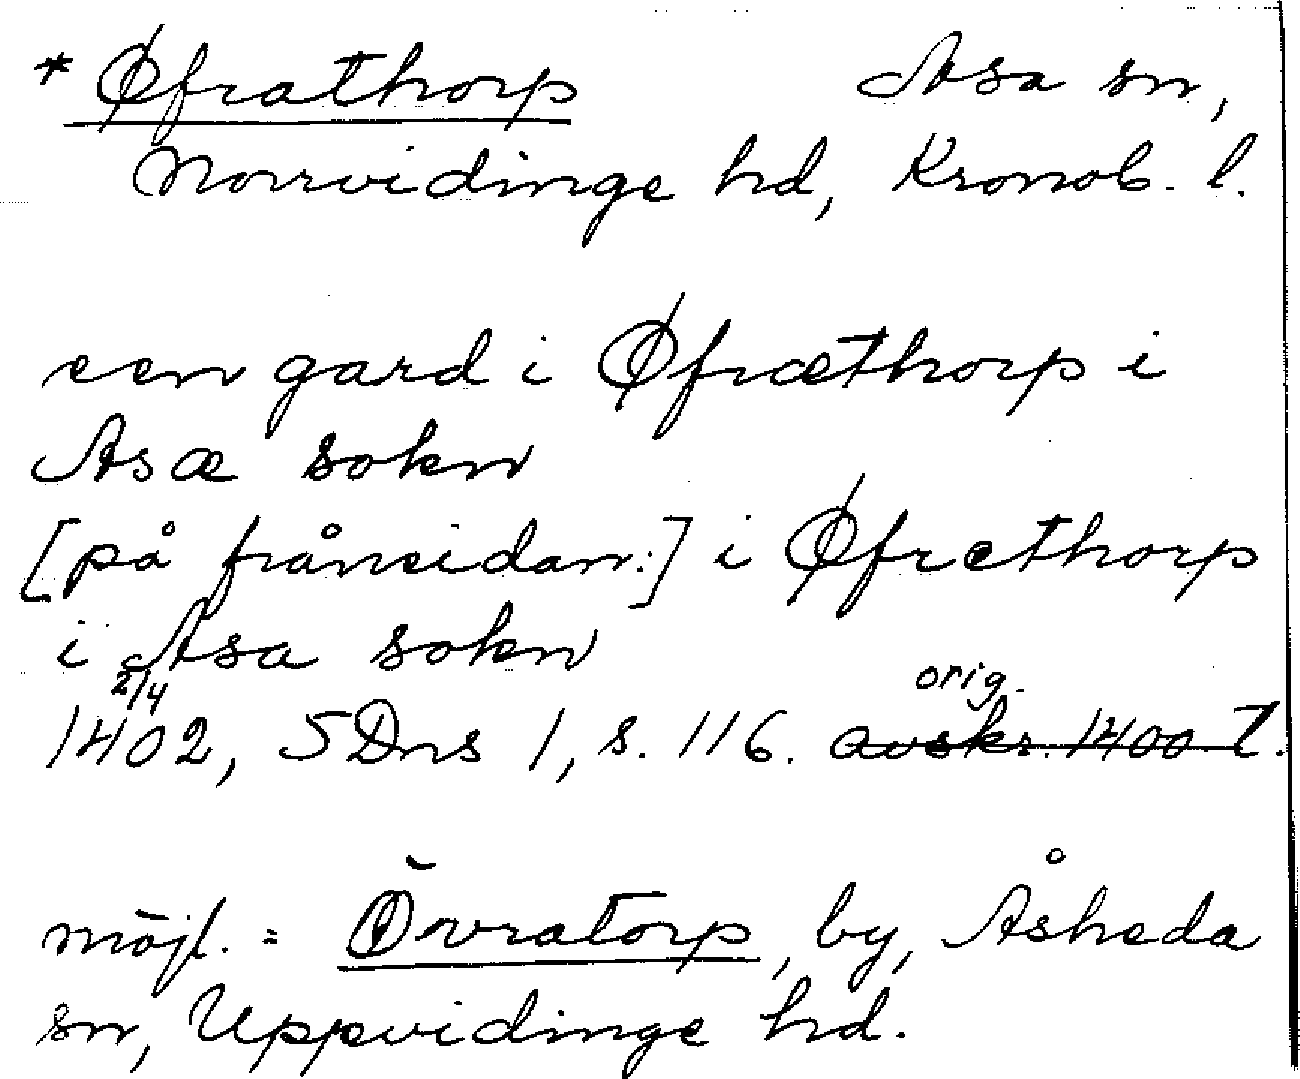 * Øfrathorp Asa sn,
Norrvidinge hd, Kronob. l.
een gard i Øfræthorp i
Asæ sokn
[på frånsidan:] i Øfræthorp
i Asa sokn
2/4 orig.
1402, SDns 1, s. 116. avskr. 1400-t.
möjl. = Övratorp, by, Åsheda
sn, Uppvidinge hd.